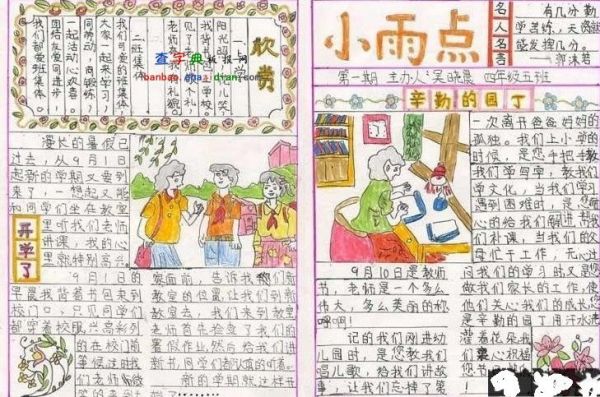 欣赏
上学
阳光
见了
老师
二班集体
我们可爱的班集体
大家一起来学习
同劳动，
一起活动心欢喜。
团结友爱同进步，
我们都爱班集体
查字典 板报网
漫长的暑假已
过去，从9月1日
起新的学期又要到
来了，一想起又能
和同学们坐在教室
里听我们老师
讲课，我的心
里就特别高兴
开学了
9月1日的
早晨我背着书包来到
校门口，只见同学们
都穿着校服兴高彩列
的在校门前
等候注时我
们老师
家面前，告诉我们新
教室的位置，让我们到新
教室去，我们来到教室
老师首先检查了我们的
暑假作业，然后给我们进
新书，同学们都认真的听着。
新的学期就这样开
小雨点
名人名言
有几分勤
学苦练，天资就
能发挥几分。
——郭沫若
第一期 主办人：吴晓晨 四年级五班
辛勤的园丁
一次离开爸爸妈妈的
孤独。我们上小学的
时候，是您手把手教我
们学写字，教我们
学文化，当我们学习
遇到困难时，是您耐
心的给我们解讲帮我
们补课，当我们的父
母忙于工作，无心过
问我们的学习时又是您
做我们家长的工作，使
他们关心我们的成长，您
是辛勤的园丁用汗水浇
灌着花朵我
们衷心祝福
您节日
9月10日是教师
节，老师是一个多么
伟大，多么美丽的称
呼啊！
记的我们刚进幼
儿园时，是您教我们
唱儿歌，给我们讲故
事，让我们忘掉了第